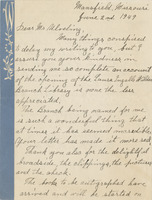 Mansfield, Missouri
June 2nd 1949
Dear Mr. Ulveling;
Many things conspired to
delay my writing to you, but I
assure you your kindness in
sending me so complete an account
of the opening of the Laura Ingalls Wilder
Branch Library is none the less
appreciated.
The Branch being named for me
is such a wonderful thing that
at times it has seemed incredible.
Your letter has made it more real
Thank you also for the delightful
broadside, the clippings, the pictures
and the book.
The books to be autographed have
arrived and will be started on